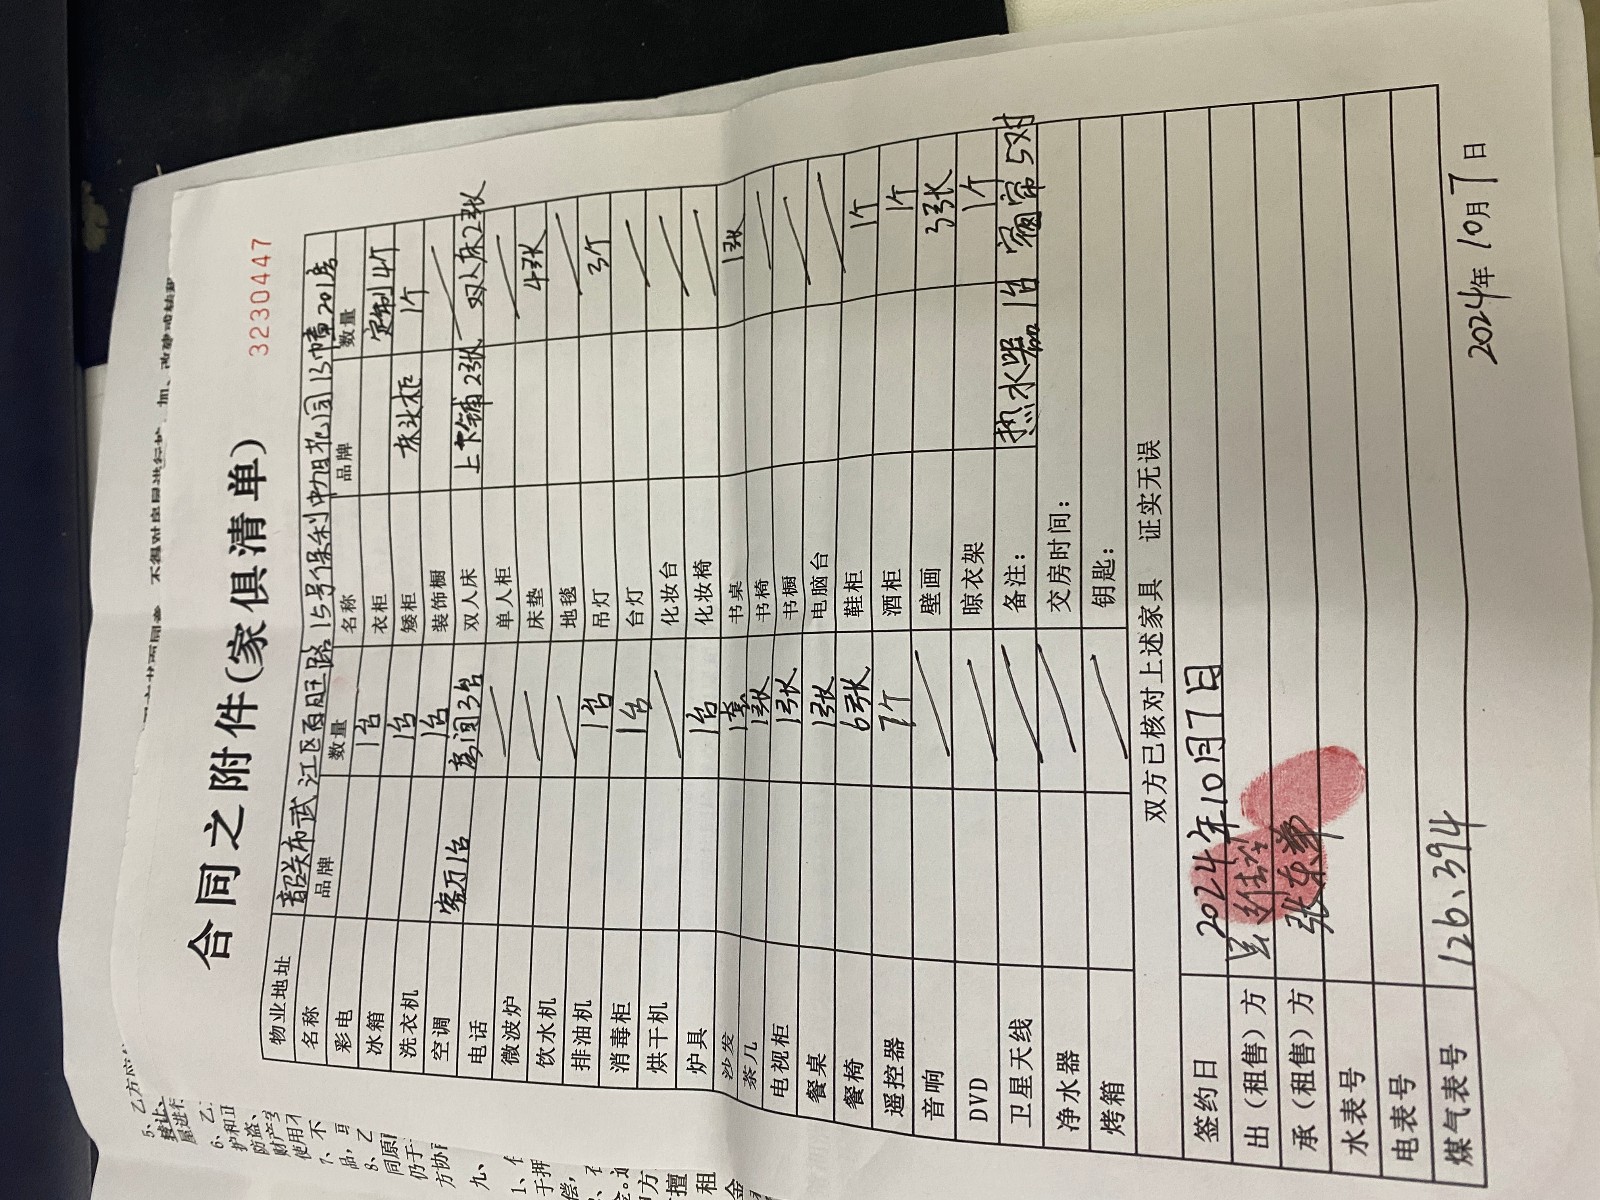 3230447
合同之附件(家俱清单)
物业地址 韶关市武江区西旺路15号保利中旭花园13幢201房
名称 品牌 数量 名称 品牌 数量
彩电 1台 衣柜 定制4个
冰箱 1台 矮柜 床头柜 1个
洗衣机 1台 装饰橱
空调 客厅1台 房间3台 双人床 上下铺2张 双人床2张
电话 单人柜
微波炉 床垫 4张
饮水机 地毯
排油机 1台 吊灯 3个
消毒柜 1台 台灯
烘干机 化妆台
炉具 1台 化妆椅
沙发 1套 书桌 1张
茶几 1张 书椅
电视柜 1张 书橱
餐桌 1张 电脑台
餐椅 6张 鞋柜 1个
遥控器 7个 酒柜 1个
音响 壁画 3张
DVD 晾衣架 1个
卫星天线 备注: 热水器1台 窗帘5对
净水器 交房时间:
烤箱 钥匙:
双方已核对上述家具 证实无误
签约日 2024年10月7日
出(租售)方
承(租售)方 张东
水表号
电表号
煤气表号 126.394
2024年10月7日